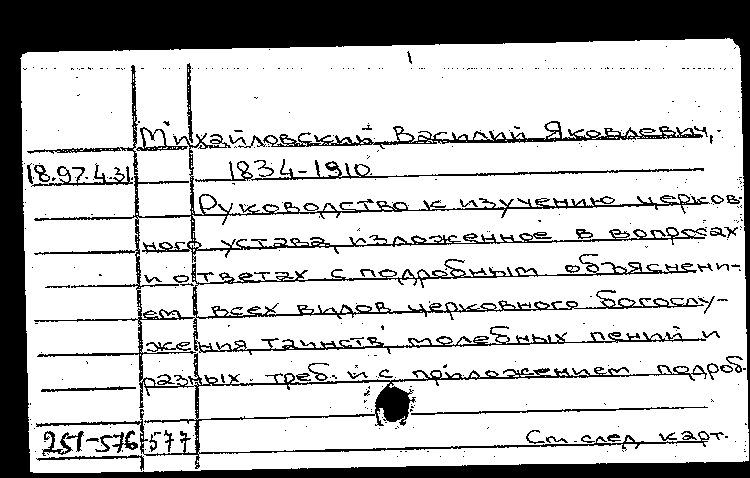 1
Михайловский, Василий Яковлевич,
18.97.4.31 1834-1910
Руководство к изучению церков-
ного устава, изложенное в вопросах
и ответах с подробным объяснени-
ем всех видов церковного богослу-
жения, таинств, молебных пений и
разных треб. и с приложением подроб.
251-576 577 См. след. карт.